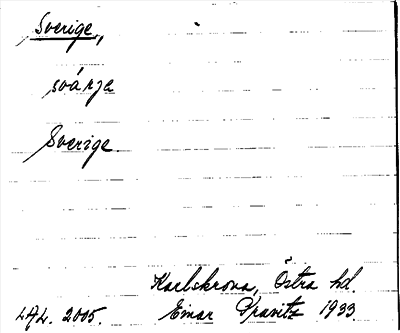 Sverige,
svárja
Sverige
Karlskrona, Östra hd.
2005. Einar 1933